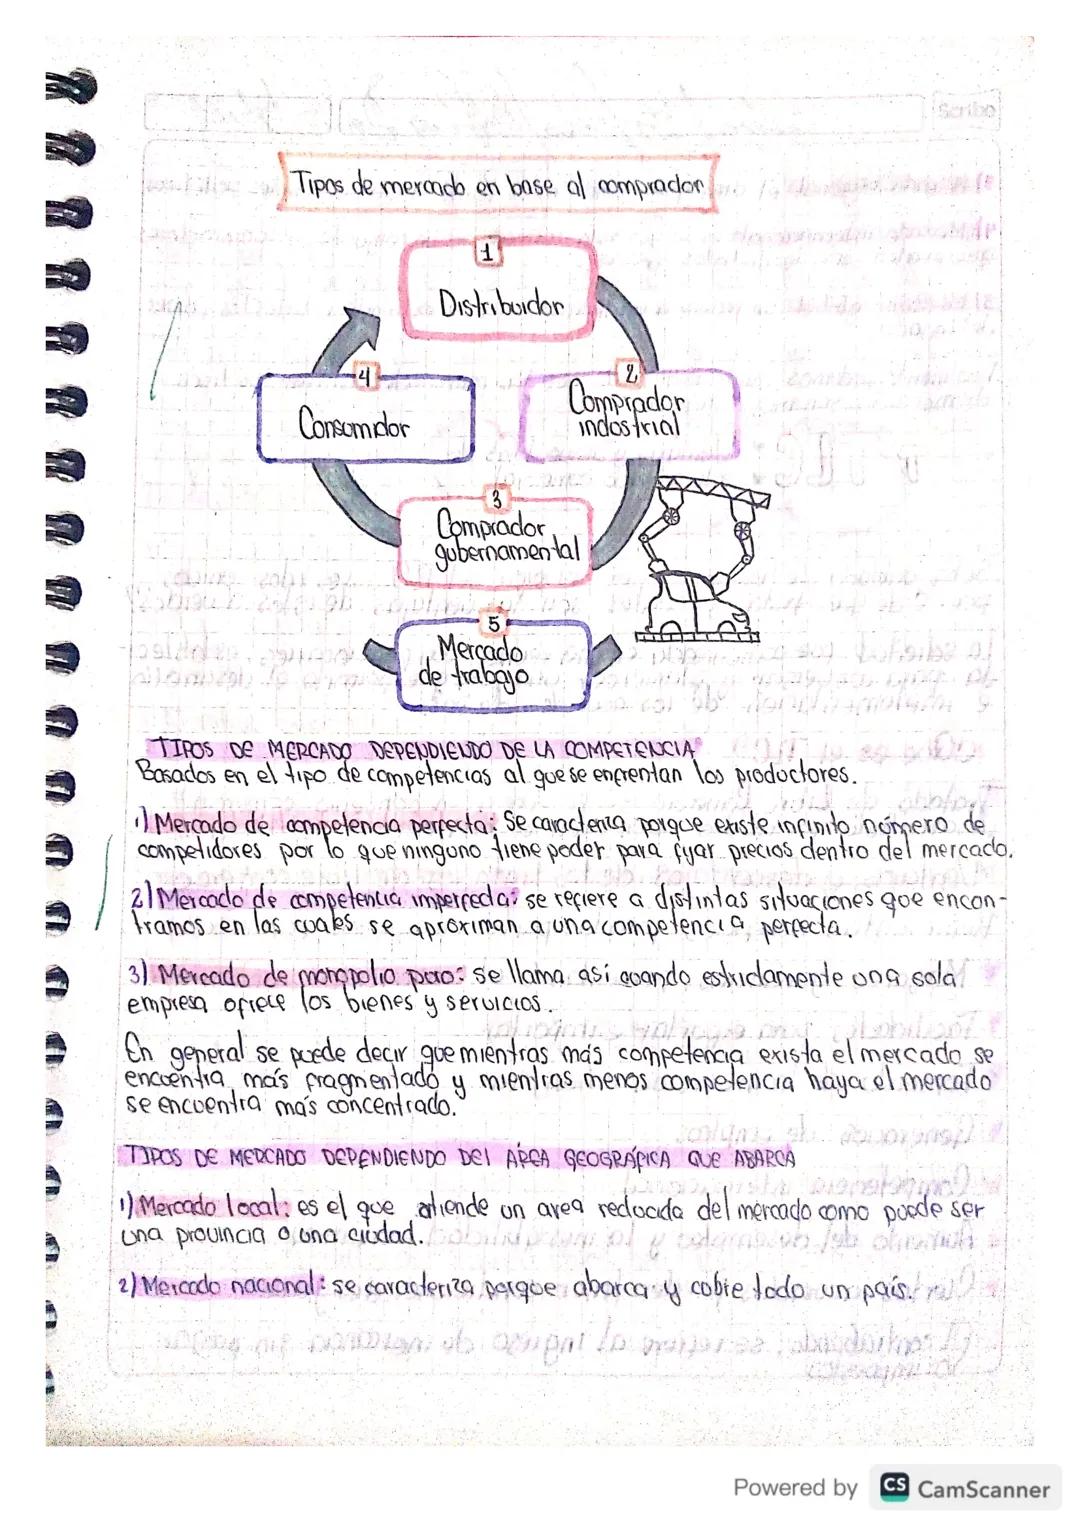 Scribo
Tipos de mercado en base al comprador
1
Distribuidor
2
Comprador
industrial
3
Comprador
gubernamental
4
Consumidor
5
Mercado
de trabajo
TIPOS DE MERCADO DEPENDIENDO DE LA COMPETENCIA
Basados en el tipo de competencias al que se enfrentan los productores.
1) Mercado de competencia perfecta: Se caracteriza porque existe infinito número de
competidores por lo que ninguno tiene poder para fijar precios dentro del mercado.
2) Mercado de competencia imperfecta: se refiere a distintas situaciones que encon-
tramos en las cuales se aproximan a una competencia perfecta.
3) Mercado de monopolio puro: se llama así cuando estrictamente una sola
empresa ofrece los bienes y servicios.
En general se puede decir que mientras más competencia exista el mercado se
encuentra más fragmentado y mientras menos competencia haya el mercado
se encuentra más concentrado.
TIPOS DE MERCADO DEPENDIENDO DEL ÁREA GEOGRÁFICA QUE ABARCA
1) Mercado local: es el que atiende un area reducida del mercado como puede ser
una provincia o una ciudad.
2) Mercado nacional: se caracteriza porque abarca y cubre todo un país.
Powered by CS CamScanner